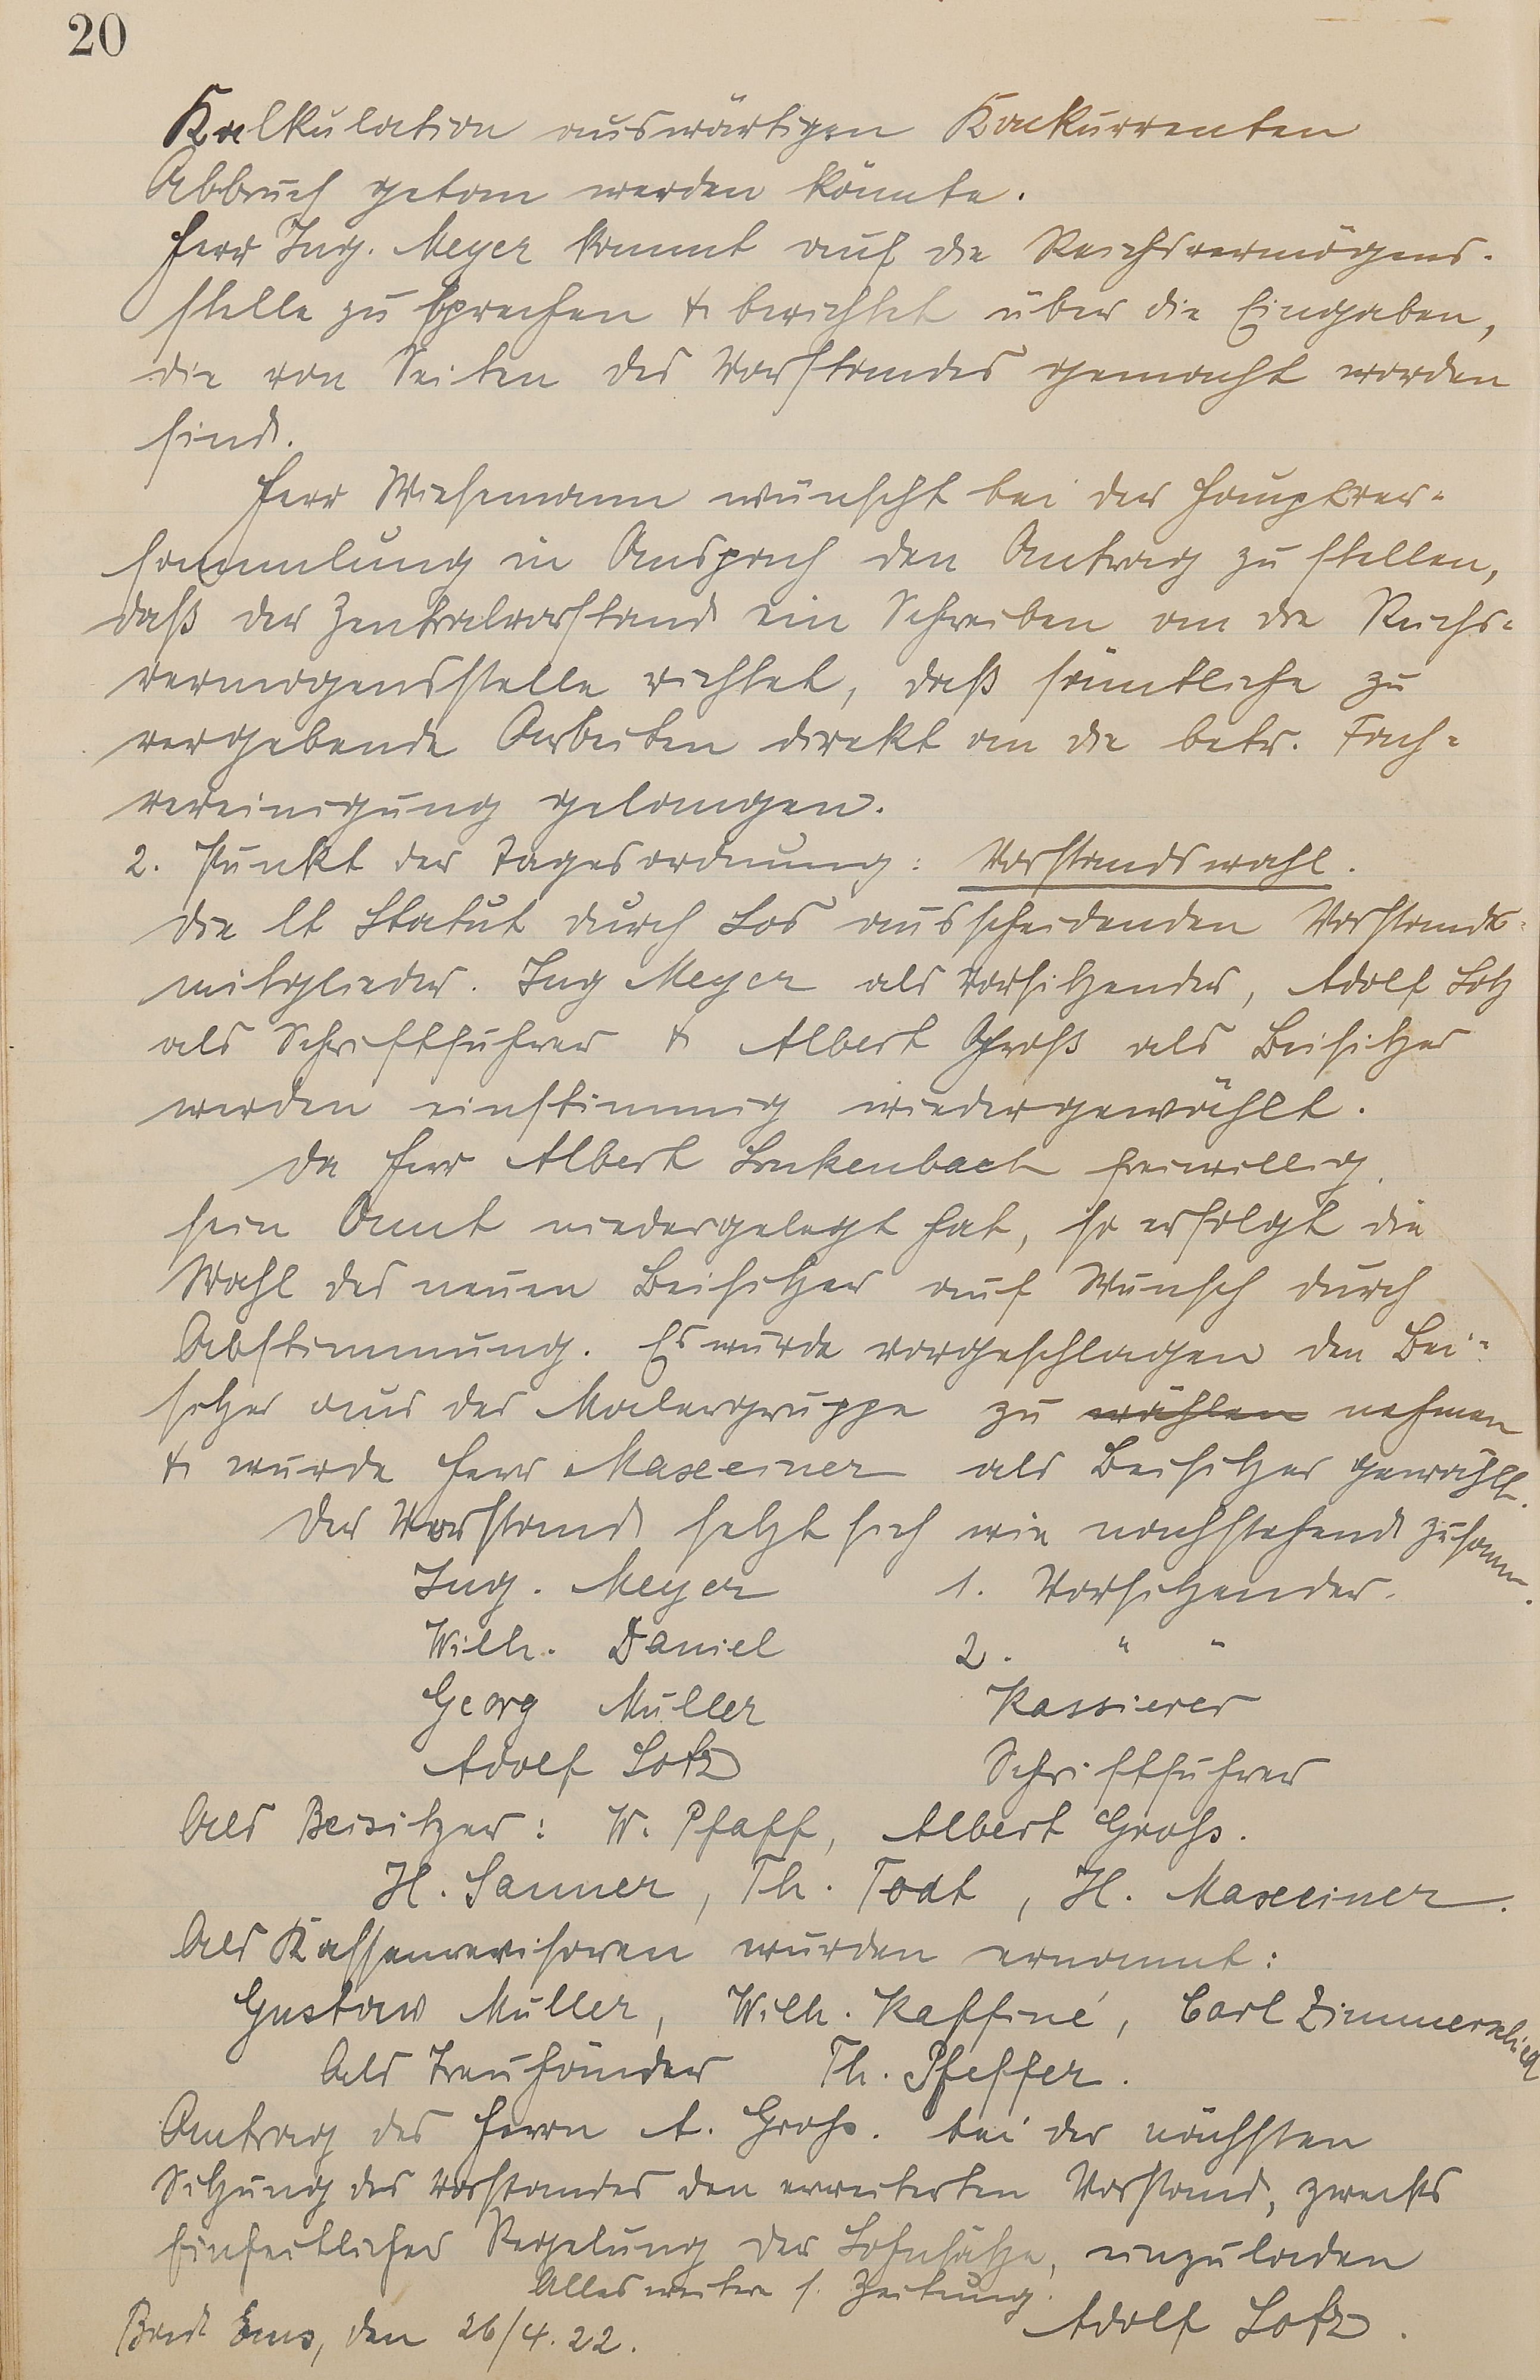 20
Kalkulation auswärtigen Konkurrenten
Abbruch getan werden könnte.
Herr Ing. Meyer kommt auf die Reichsvermögens-
stelle zu sprechen & berichtet über die Eingaben,
die von Seiten des Vorstandes gemacht worden
sind.
Herr Wiesemann wünscht bei der Hauptver-
sammlung in Ansprach den Antrag zu stellen,
daß der Zentralvorstand ein Schreiben an die Reichs-
vermögensstelle richtet, daß sämtliche zu
vergebende Arbeiten direkt an die betr. Fach-
vereinigung gelangen.
2. Punkt der Tagesordnung: Vorstandswahl.
Die lt Statut durch Los ausscheidenden Vorstands-
mitglieder. Ing Meyer als Vorsitzender, Adolf Lotz
als Schriftführer & Albert Groß als Beisitzer
werden einstimmig wiedergewählt.
Da Herr Albert Linkenbach freiwillig
sein Amt niedergelegt hat, so erfolgt die
Wahl des neuen Beisitzer auf Wunsch durch
Abstimmung. Es wurde vorgeschlagen den Bei-
sitzer aus der Malergruppe zu wählen nehmen
& wurde Herr Maxeiner als Beisitzer gewählt.
Der Vorstand setzt sich wie nachstehend zusamm.
Ing. Meyer 1. Vorsitzender.
Wilh. Daniel 2. " "
Georg Müller Kassierer
Adolf Lotz Schriftführer
Als Beisitzer: W. Pfaff, Albert Groß.
H. Sanner, Th. Todt, H. Maxeiner.
Als Kassenrevisoren wurden ernannt:
Gustav Müller, Wilh. Kaffiné, Carl Zimmerschied
Als Treuhänder Th. Pfeffer.
Antrag des Herrn A. Groß. bei der nächsten
Sitzung des Vorstandes den erweiterten Vorstand, zwecks
Einheitlicher Regelung der Lohnsätze, einzuladen
Alles weitere s. Zeitung.
Bad Ems, den 26/4.22. Adolf Lotz.